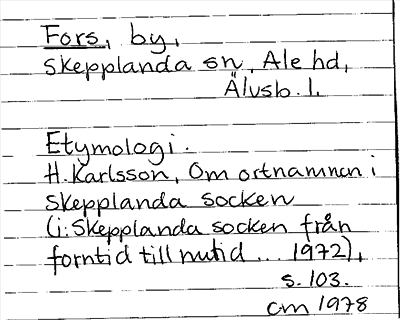 Fors, by,
Skepplanda sn, Ale hd,
Älvsb. l.
Etymologi.
H. Karlsson, Om ortnamnen i
Skepplanda socken
(i: Skepplanda socken från
forntid till nutid ... 1972),
s. 103.
cm 1978